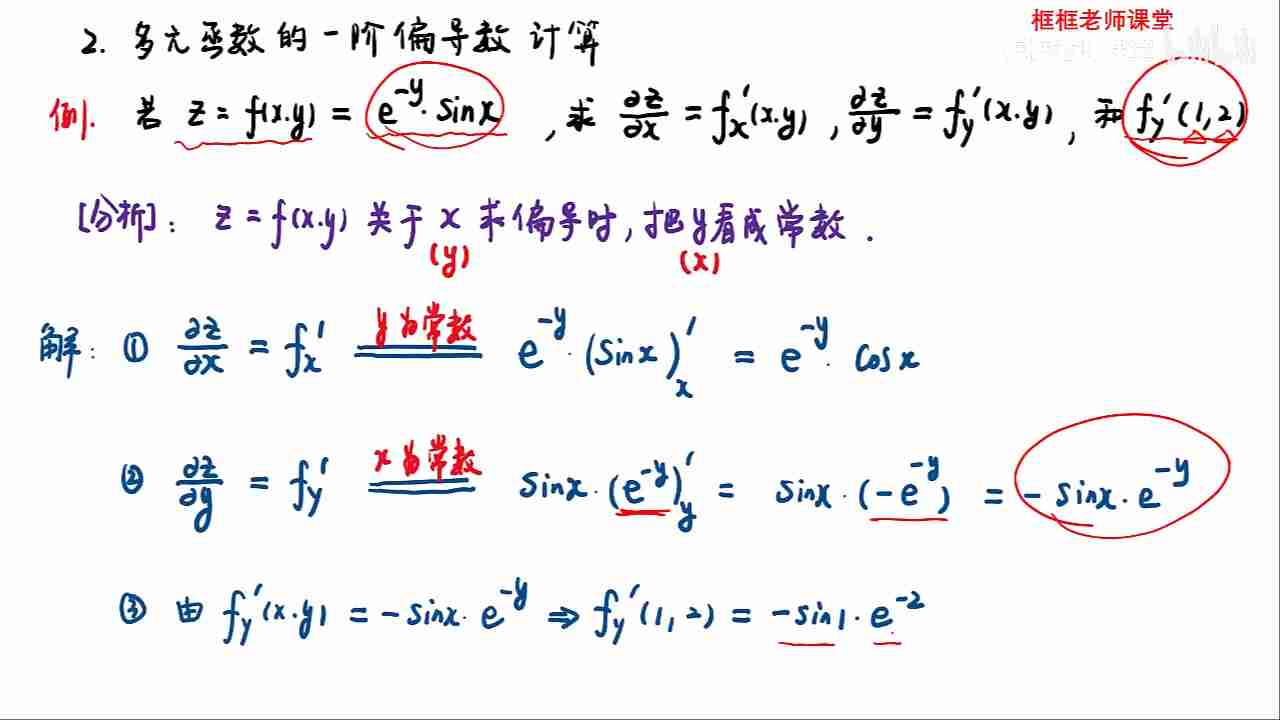 框框老师课堂
2. 多元函数的一阶偏导数计算
例. 若 z = f(x.y) = e^{-y}·sinx , 求 ∂z/∂x = f_x'(x.y) , ∂z/∂y = f_y'(x.y) , 和 f_y'(1,2)
[分析]: z = f(x.y) 关于 x 求偏导时, 把 y 看成常数.
(y) (x)
解: ① ∂z/∂x = f_x' y为常数 e^{-y}·(sinx)_x' = e^{-y}· cosx
② ∂z/∂y = f_y' x为常数 sinx·(e^{-y})_y' = sinx·(-e^{-y}) = -sinx·e^{-y}
③ 由 f_y'(x.y) = -sinx·e^{-y} ⇒ f_y'(1,2) = -sin1·e^{-2}